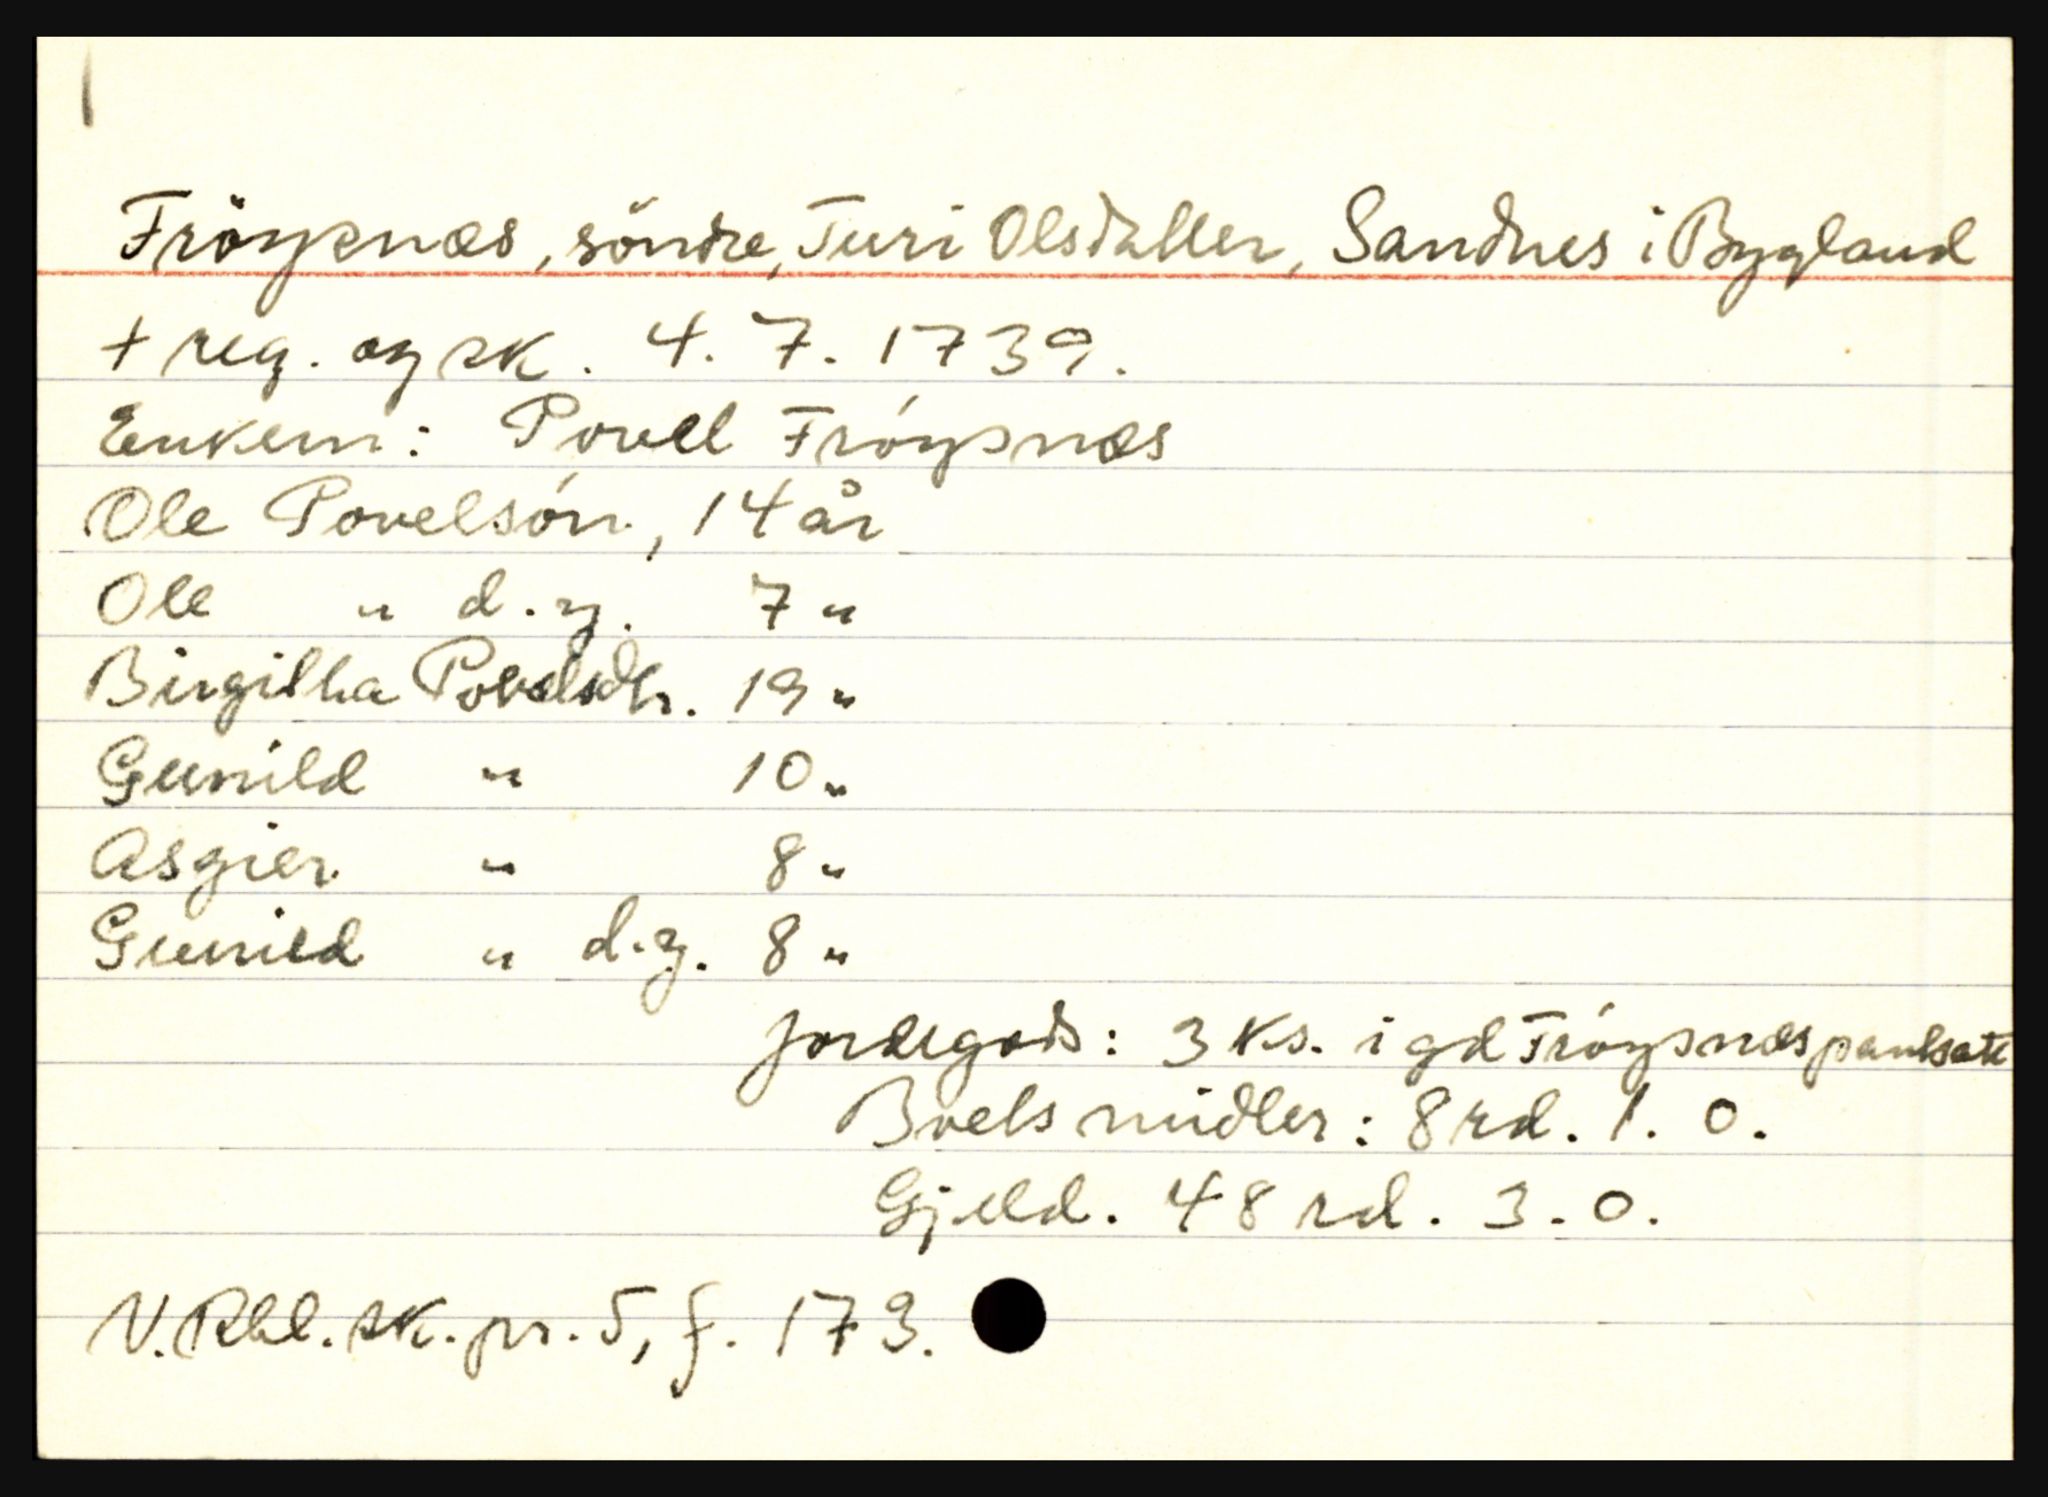 Fröysnæs, söndre, Turi Olsdatter, Sandnes i Bygland
+ reg. og sk. 4. 7. 1739.
Enkem: Povel Fröysnæs
Ole Povelsón, 14 år
Ole " d. y. 7 "
Birgitha Povelsdtr. 19 "
Gunild " 10 "
Asgier " 8 "
Gunild " d. y. 8 "
Jordegods: 3 ks. i gd Fröysnæs pantsatt
Boets midler: 8 rd. 1. 0.
Gjeld. 48 rd. 3. 0.
N. Rbl. sk. pr. 5, f. 173.